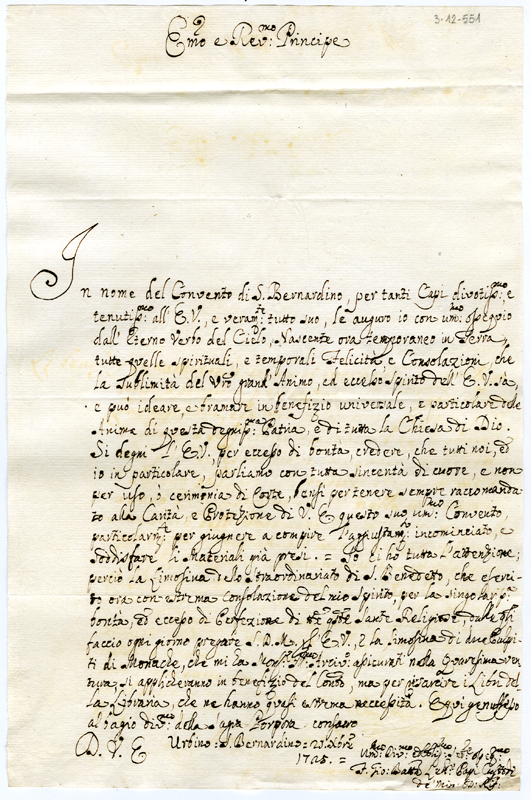 3-12-551
Emo e Revmo: Principe
In nome del Convento di S. Bernardino, per tanti Capi divotissmo: e
tenutissmo: all' E.V., e veramte: tutto suo, le auguro io con ummo: ossequio
dall' Eterno Verbo del Cielo, Nascente ora temporaneo in Terra,
tutte quelle spirituali, e temporali Felicità, e Consolazioni, che
la sublimità del Vro grand' Animo, ed eccelso spirito dell' E.V. sà,
e può ideare, e bramare in benefizio universale, e particolare delle
Anime di questa degnissma: Patria, e di tutta la Chiesa di Dio.
Si degni l' E.V., per eccesso di bontà, credere, che tutti noi, ed
io in particolare, parliamo con tutta sincerità di cuore, e non
per uso, ò cerimonia di Corte, bensì per tenere sempre raccomanda
to alla Carità, e Protezione di V. E. questo suo ummo: Convento,
particolarmte: per giugnere a compire l'aggiustamto: incominciato, e
soddisfare li Materiali già presi. = Io ci hò tutta l'attenzione;
perciò la Limosina dello straordinariato di S. Benedetto, che eserci-
to ora con estrema consolazione del mio spirito, per la singolar
bontà, ed eccesso di Perfezione di queste Sante Religiose, dalle quli
faccio ogni giorno pregare S.D.M. per l' E.V., e la limosina di due Pulpi-
ti di Monache, che mi la Monsr Arciv: assicurati nella Quaresima ven
tura, si applicheranno in benefizio del Conto, ma per risarcire i Licei del
la Libraria, che ne hanno quasi estrema necessità. E qui genuflesso
al bagio divmo: della Sagra Porpora consacro
D. V. E Urbino: S. Bernardino: 21 Xbre
1725. =
F. Gio: Batta
de' Min: Oss: